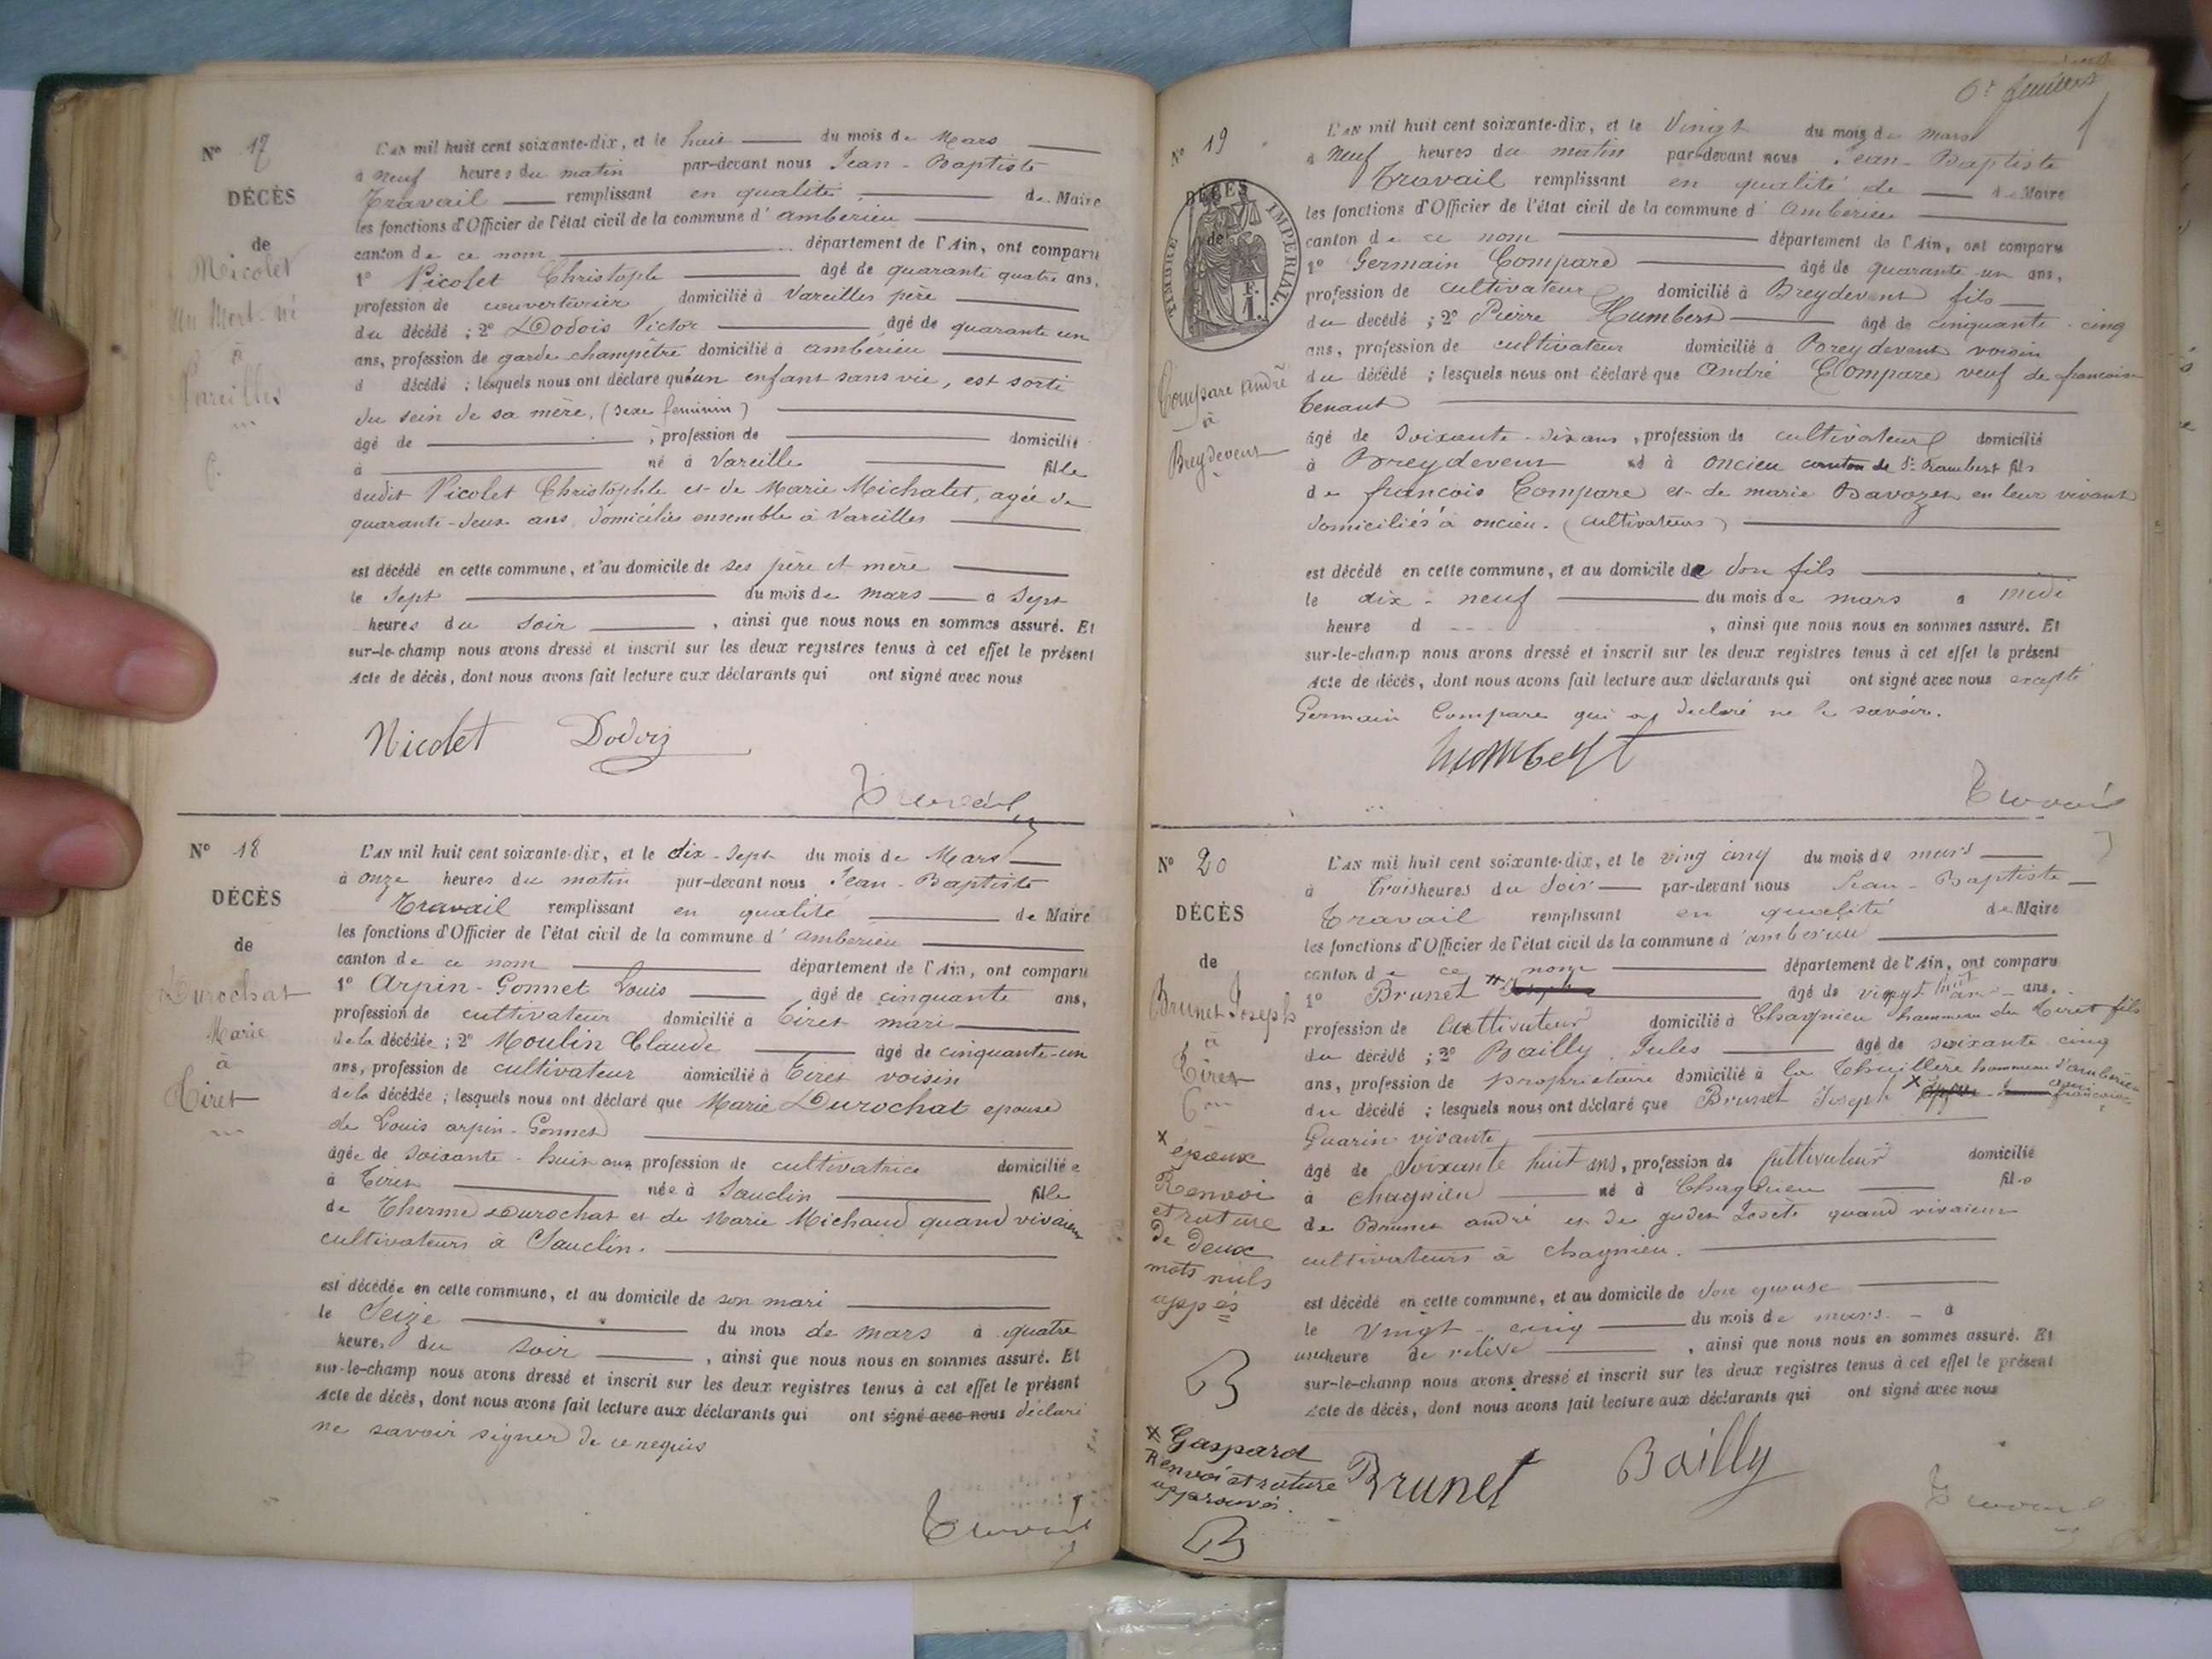 N° 17
DÉCÈS
de
Nicolet
un Mort-né
à
Vareilles
L'AN mil huit cent soixante-dix, et le huit du mois de Mars
à neuf heures du matin par-devant nous Jean-Baptiste
Travail remplissant en qualité de Maire
les fonctions d'Officier de l'état civil de la commune d'ambérieu
canton de ce nom département de l'Ain, ont comparu
1° Nicolet Christophe âgé de quarante quatre ans,
profession de couverturier domicilié à Vareilles père
du décédé ; 2° Dodois Victor âgé de quarante un
ans, profession de garde champêtre domicilié à ambérieu
d décédé ; lesquels nous ont déclaré qu'un enfant sans vie, est sorti
du sein de sa mère, (sexe feminin)
âgé de , profession de domicilié
à né à Vareilles fille
dudit Nicolet Christophle et de Marie Michalet, agée de
quarante-deux ans, domiciliés ensemble à Vareilles
est décédé en cette commune, et au domicile de ses père et mère
le Sept du mois de mars à Sept
heures du soir , ainsi que nous nous en sommes assuré. Et
sur-le-champ nous avons dressé et inscrit sur les deux registres tenus à cet effet le présent
Acte de décès, dont nous avons fait lecture aux déclarants qui ont signé avec nous
Nicolet Dodois
Travail
N° 18
DÉCÈS
de
Durochat
Marie
à
Tiret
L'AN mil huit cent soixante-dix, et le dix-sept du mois de Mars
à onze heures du matin par-devant nous Jean-Baptiste
Travail remplissant en qualité de Maire
les fonctions d'Officier de l'état civil de la commune d'ambérieu
canton de ce nom département de l'Ain, ont comparu
1° Arpin-Gonnet Louis âgé de cinquante ans,
profession de cultivateur domicilié à Tiret mari
de la décédée ; 2° Moulin Claude âgé de cinquante-un
ans, profession de cultivateur domicilié à Tiret voisin
de la décédée ; lesquels nous ont déclaré que Marie Durochat epouse
de Louis arpin-Gonnet
âgée de soixante-huit ans profession de cultivatrice domiciliée
à Tiret née à Sauclin fille
de Therme Durochat et de Marie Michaud quand vivaient
cultivateurs à Sauclin.
est décédée en cette commune, et au domicile de son mari
le Seize du mois de mars à quatre
heures du soir , ainsi que nous nous en sommes assuré. Et
sur-le-champ nous avons dressé et inscrit sur les deux registres tenus à cet effet le présent
Acte de décès, dont nous avons fait lecture aux déclarants qui ont signé avec nous déclaré
ne savoir signer de ce requis
Travail
6e feuillet
N° 19
DÉCÈS
de
TIMBRE IMPERIAL.
F. 1.
Compare André
à
Breydevent
L'AN mil huit cent soixante-dix, et le Vingt du mois de mars
à Neuf heures du matin par-devant nous Jean-Baptiste
Travail remplissant en qualité de de Maire
les fonctions d'Officier de l'état civil de la commune d'ambérieu
canton de ce nom département de l'Ain, ont comparu
1° Germain Compare âgé de quarante-un ans,
profession de cultivateur domicilié à Breydevent fils
du décédé ; 2° Pierre Humbert âgé de cinquante-cinq
ans, profession de cultivateur domicilié à Breydevent voisin
du décédé ; lesquels nous ont déclaré que André Compare veuf de francoise
Tenant
âgé de soixante-dix ans, profession de cultivateur domicilié
à Breydevent né à oncieu canton de St Rambert fils
de francois Compare et de marie Bavozet en leur vivant
domiciliés à oncieu. (cultivateurs)
est décédé en cette commune, et au domicile de son fils
le dix-neuf du mois de mars à midi
heure d , ainsi que nous nous en sommes assuré. Et
sur-le-champ nous avons dressé et inscrit sur les deux registres tenus à cet effet le présent
Acte de décès, dont nous avons fait lecture aux déclarants qui ont signé avec nous excepté
Germain Compare qui a déclaré ne le savoir.
humbert
Travail
N° 20
DÉCÈS
de
Brunet Joseph
à
Tiret
L'AN mil huit cent soixante-dix, et le ving cinq du mois de mars
à trois heures du soir par-devant nous Jean-Baptiste
Travail remplissant en qualité de Maire
les fonctions d'Officier de l'état civil de la commune d'amberieu
canton de ce nom département de l'Ain, ont comparu
1° Brunet × Joseph âgé de vingt huit ans.
profession de Cultivateur domicilié à Chagnieu hammeau du Tiret fils
du décédé ; 2° Bailly Jules âgé de soixante cinq
ans, profession de propriétaire domicilié à la Thuillère hammeau d'ambérieu ami
du décédé ; lesquels nous ont déclaré que Brunet Joseph × françoise
Guarin vivante
âgé de soixante huit ans, profession de Cultivateur domicilié
à Chagnieu né à Chagnieu fils
de Brunet andré et de quand vivaient
cultivateurs à chagnieu.
est décédé en cette commune, et au domicile de son epouse
le vingt-cinq du mois de mars à
une heure de relevé , ainsi que nous nous en sommes assuré. Et
sur-le-champ nous avons dressé et inscrit sur les deux registres tenus à cet effet le présent
Acte de décès, dont nous avons fait lecture aux déclarants qui ont signé avec nous
× époux
Renvoi
et rature
de deux
mots nuls
appés
B
× Gaspard
Renvoi et rature
approuvés.
B
Brunet Bailly
Travail